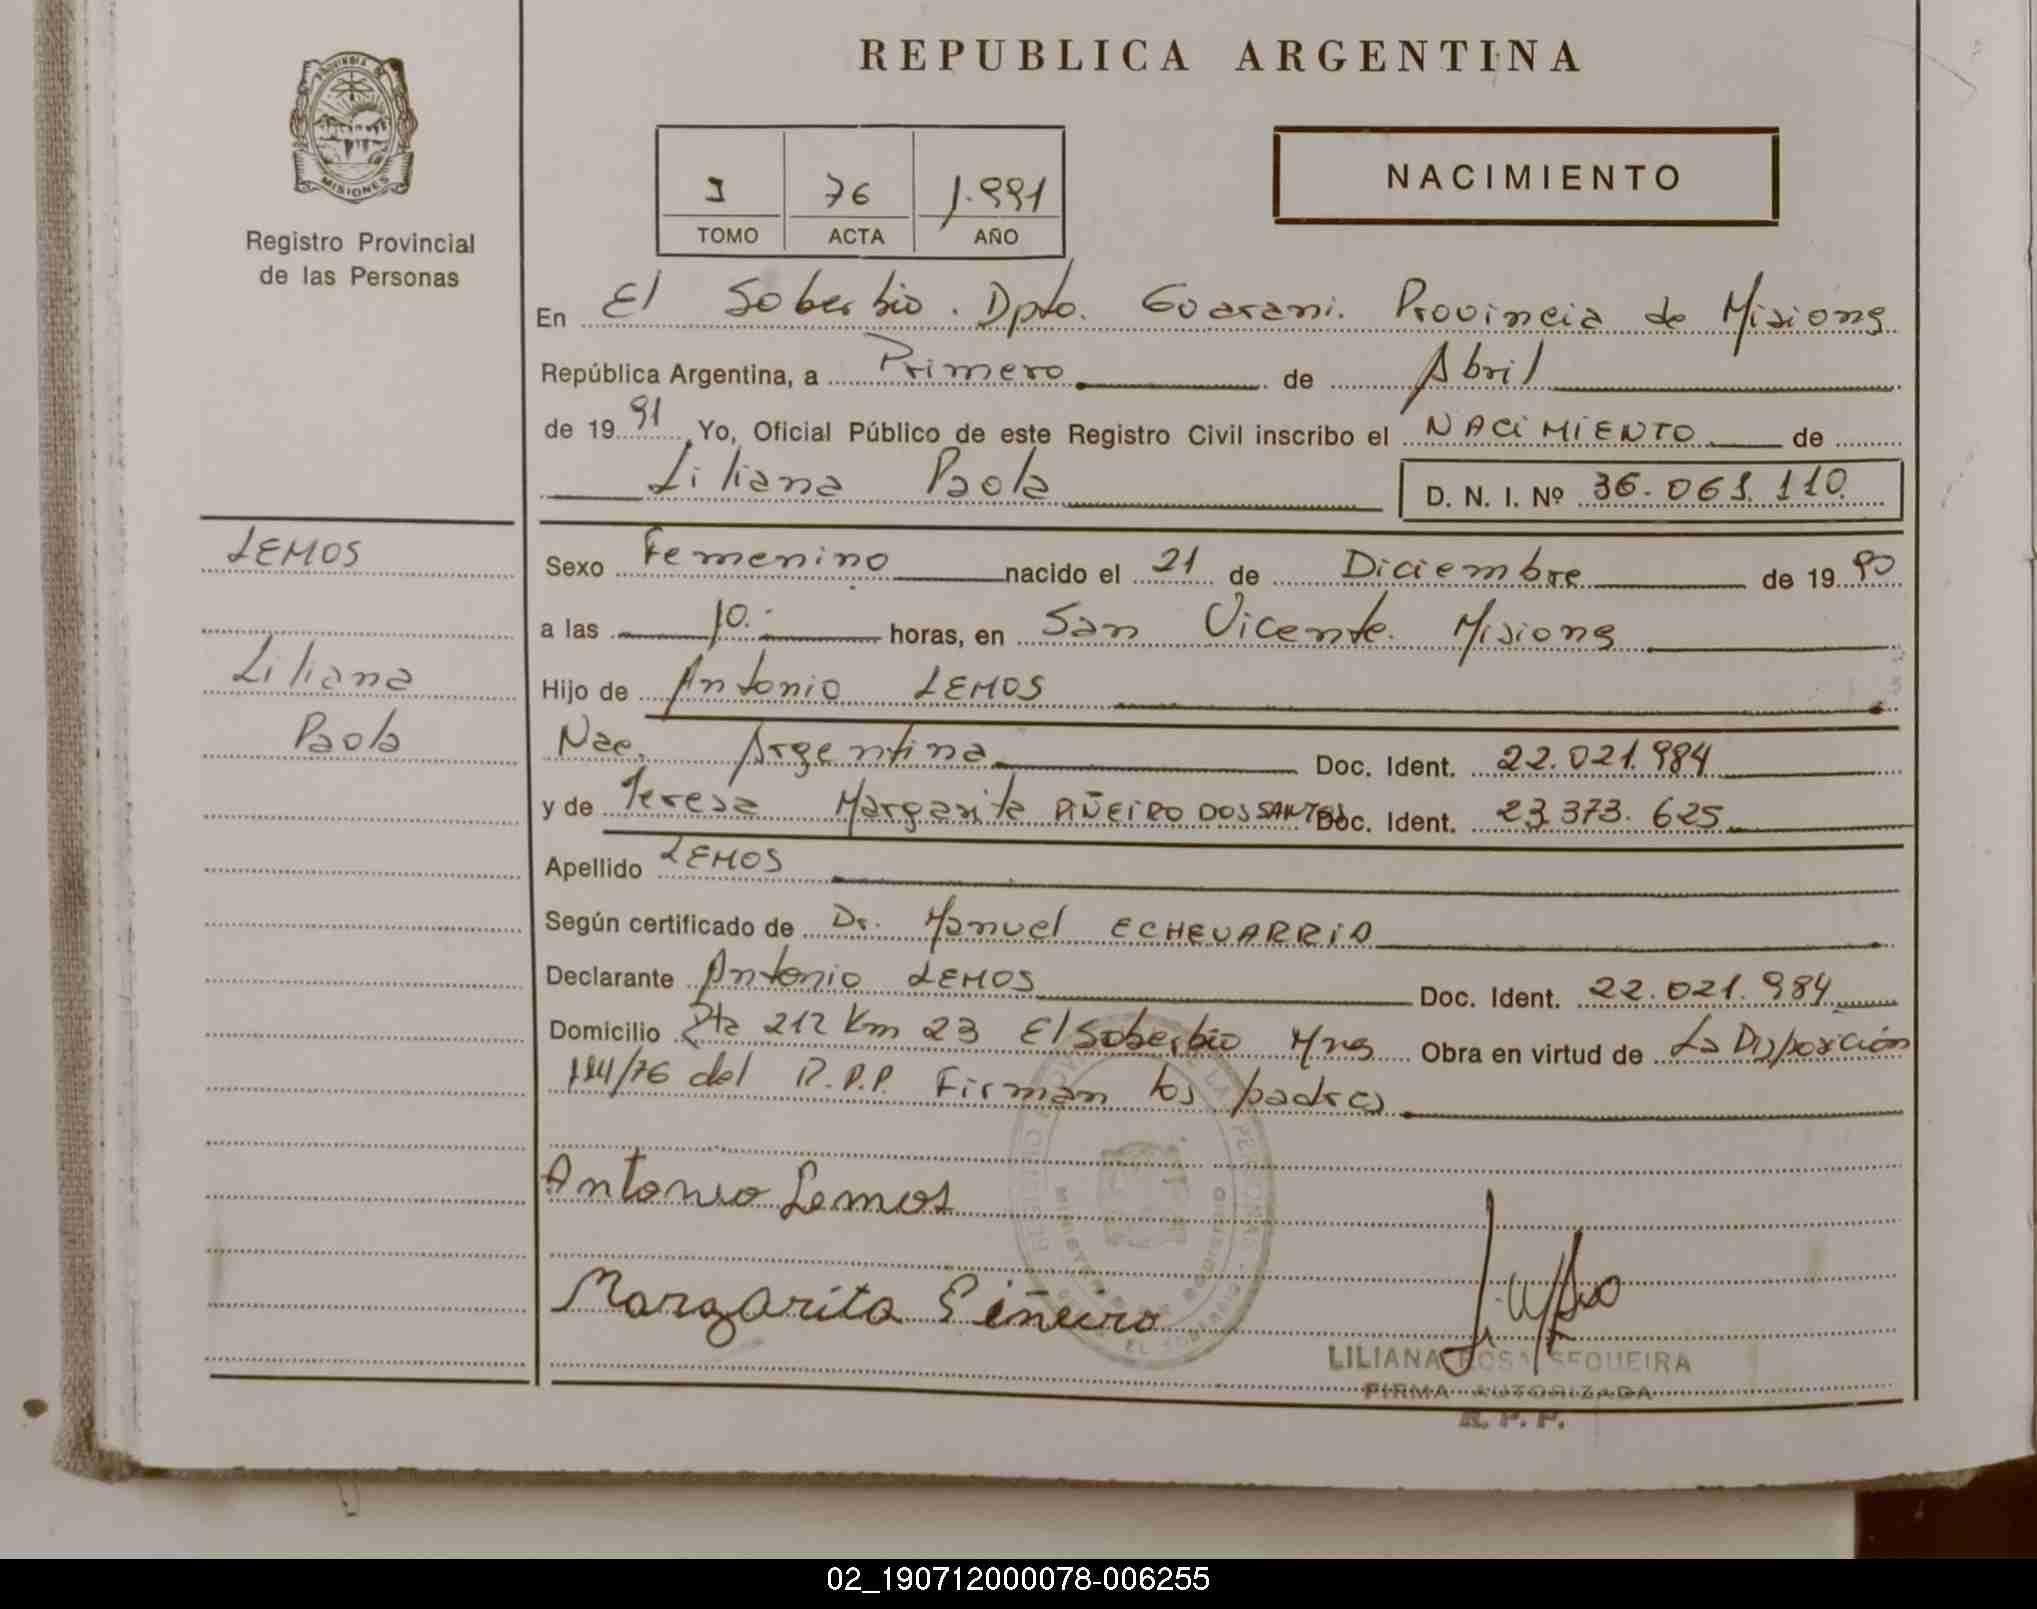 REPUBLICA ARGENTINA
PROVINCIA DE
MISIONES
Registro Provincial
de las Personas
I 76 1.991
TOMO ACTA AÑO
NACIMIENTO
En El Soberbio. Dpto. Guarani. Provincia de Misiones
República Argentina, a Primero de Abril
de 19 91 Yo, Oficial Público de este Registro Civil inscribo el NACIMIENTO de
Liliana Paola D. N. I. Nº 36.061.110
LEMOS
Liliana
Paola
Sexo Femenino nacido el 21 de Diciembre de 19 90
a las 10.- horas, en San Vicente. Misiones
Hijo de Antonio LEMOS
Nac. Argentina Doc. Ident. 22.021.984
y de Teresa Margarita PIÑEIRO DOS SANTOS Doc. Ident. 23.373.625
Apellido LEMOS
Según certificado de Dr. Manuel ECHEVARRIA
Declarante Antonio LEMOS Doc. Ident. 22.021.984
Domicilio Rta 212 Km 23 El Soberbio Mnes Obra en virtud de La Disposición
114/76 del R.P.P. Firman los padres
Antonio Lemos
Margarita Piñeiro
LILIANA ROSA SEQUEIRA
FIRMA AUTORIZADA
R. P. P.
02_190712000078-006255